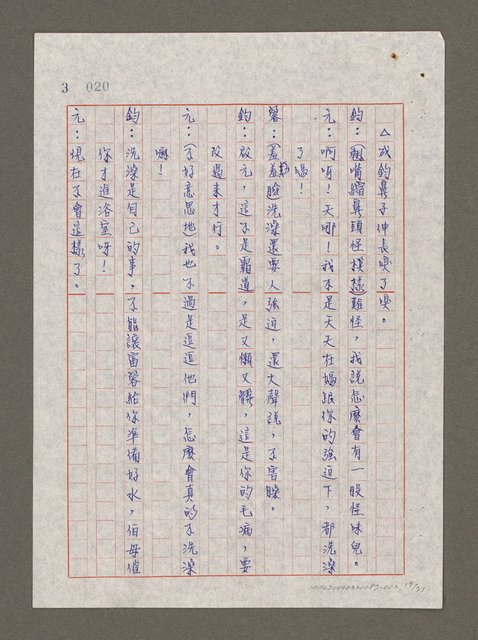 3 020
△成鈞鼻子伸長嗅了嗅。
鈞：（翹嘴縮鼻頭怪模樣）難怪，我說怎麼會有一股怪味兒。
元：啊呀！天哪！我不是天天在媽跟你的強迫下，都洗澡
了嗎！
蓉：（羞羞臉）洗澡還要人強迫，還大聲說，不害臊。
鈞：啟元，這不是霸道，是又懶又髒，這是你的毛病，要
改過來才行。
元：（不好意思地）我也不過是逗逗他們，怎麼會真的不洗澡
嘛！
鈞：洗澡是自己的事，不能讓雷蓉給你準備好水，伯母催
你才進浴室呀！
元：現在不會這樣了。
19/21